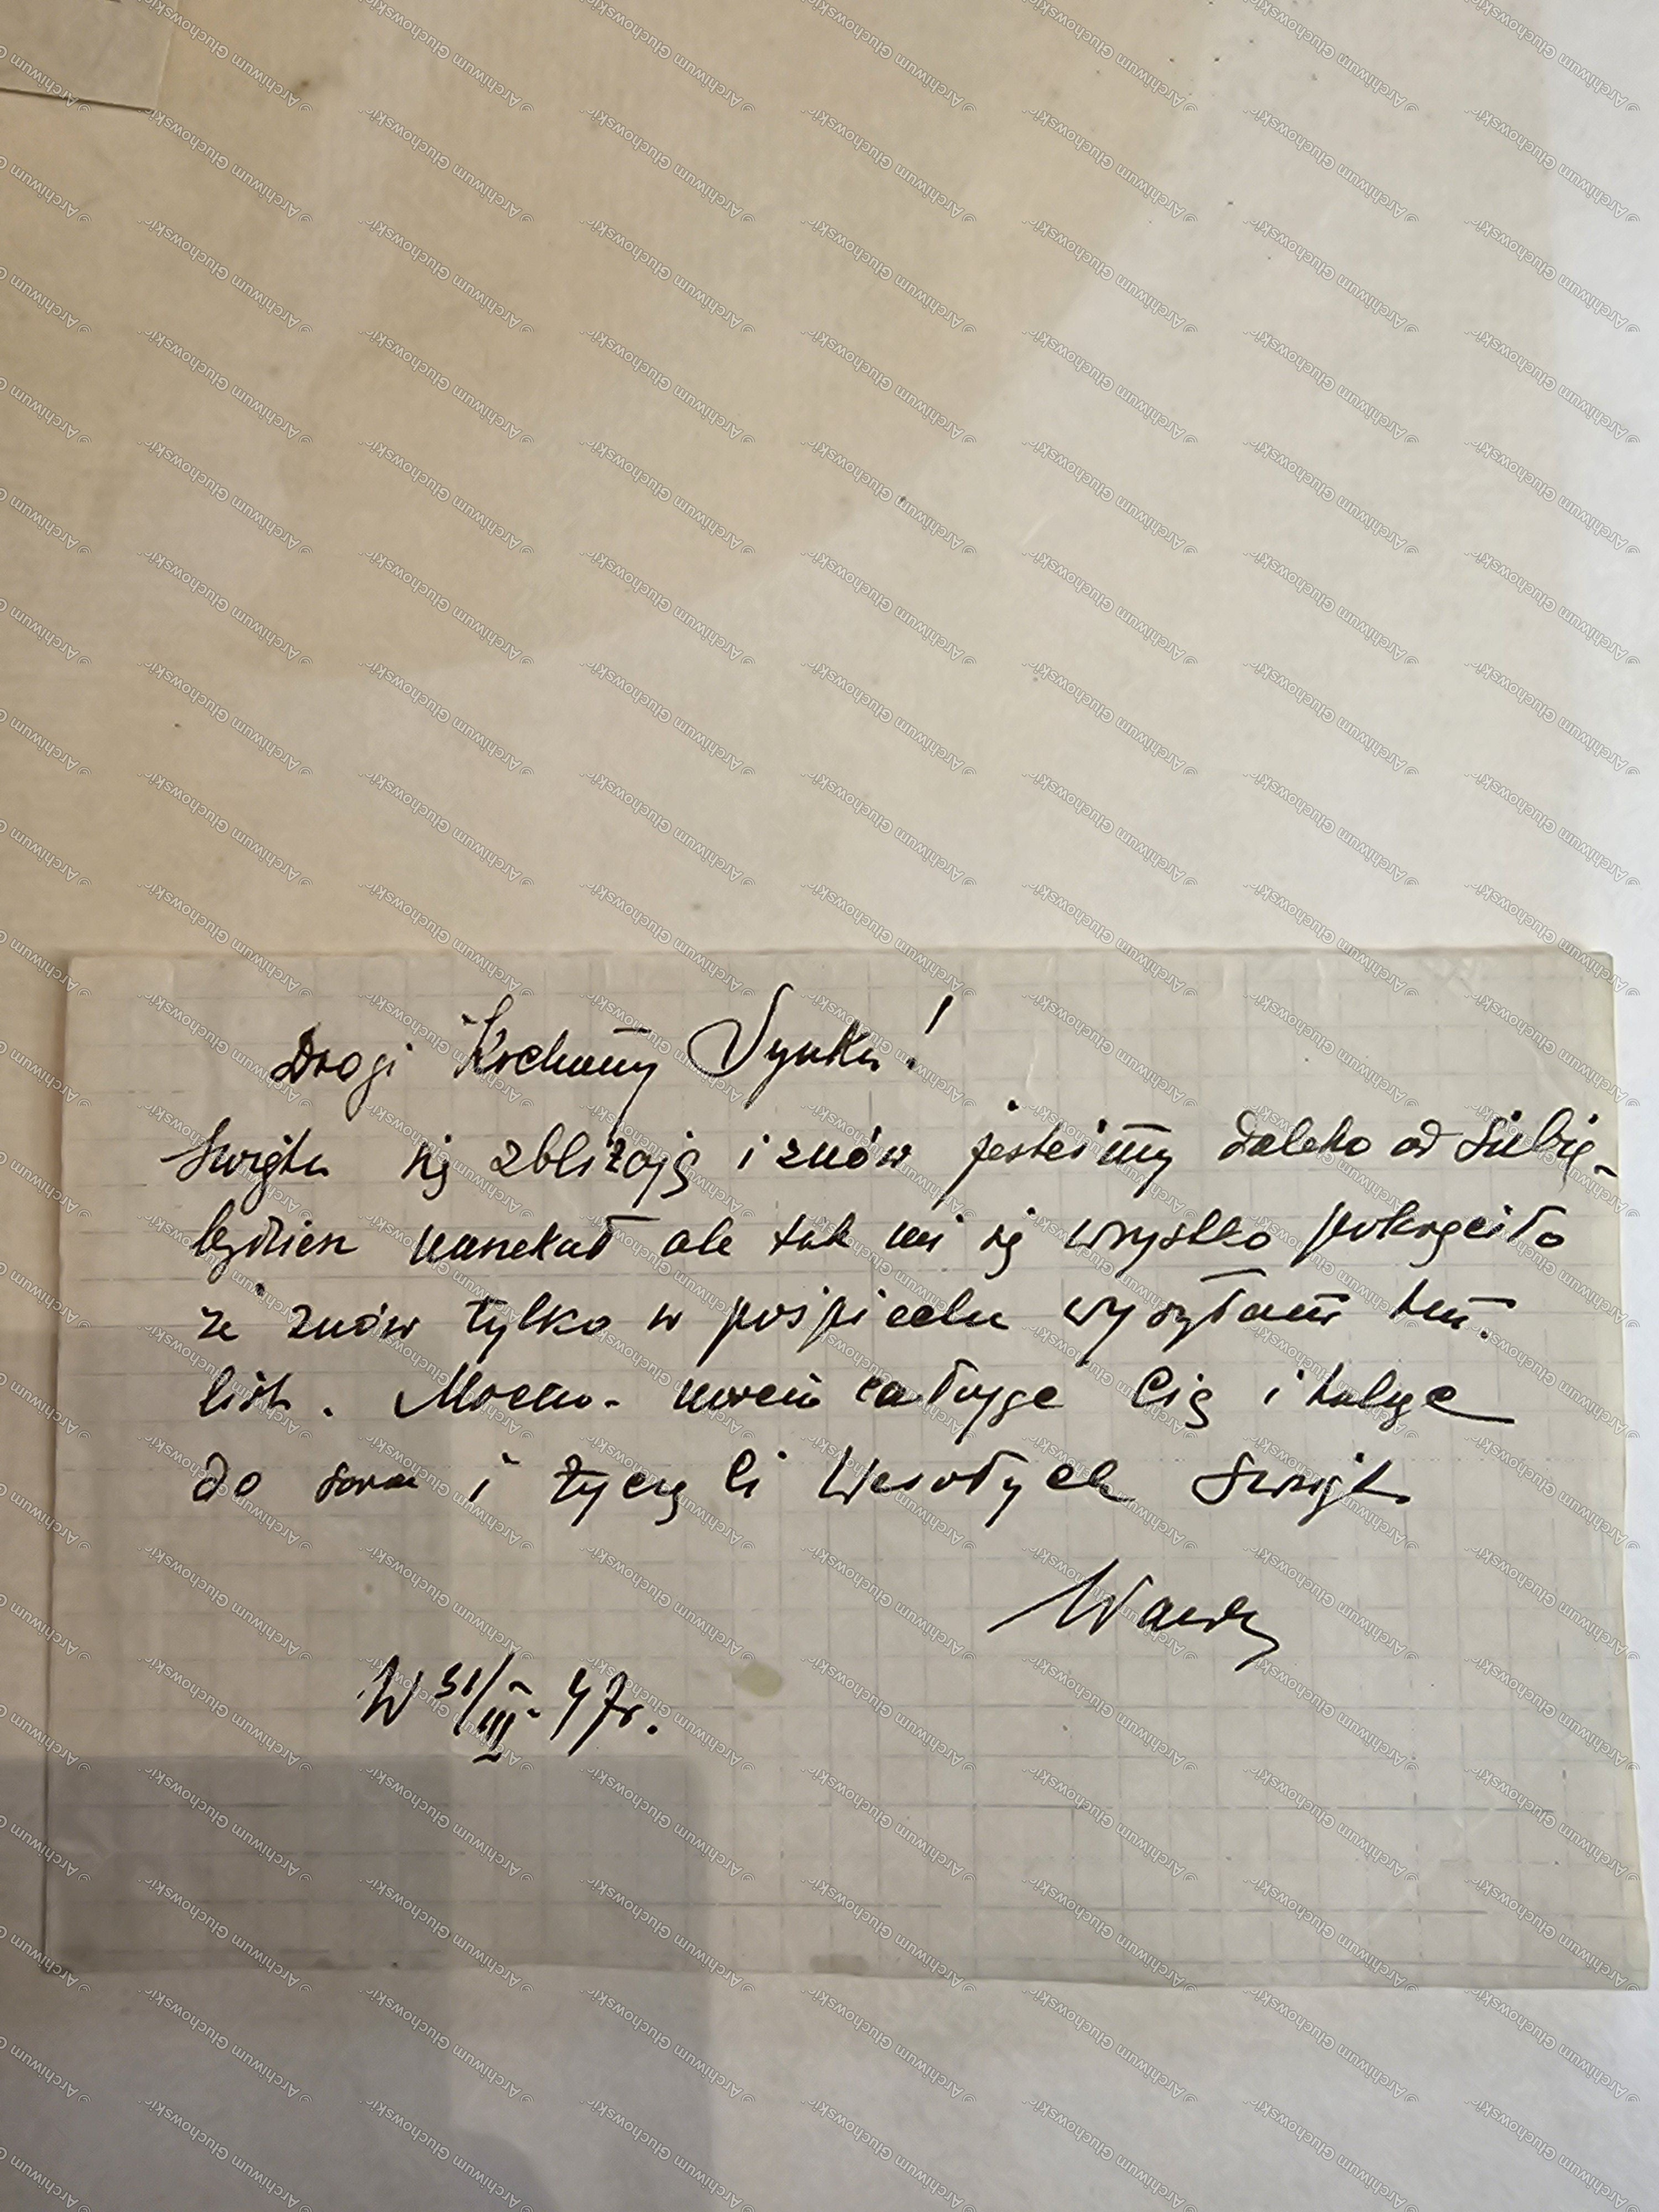 Drogi Kochany Synku!
Święta się zbliżają i znów jesteśmy daleko od siebie
ale tak mi się wszystko pokręciło
że znów tylko w pośpiechu wysyłam ten
list. Mocno - mocno całuję Cię i tulę
do serca i życzę Ci Wesołych Świąt.
Wanda
W 31/III - 47r.
© Archiwum Głuchowski